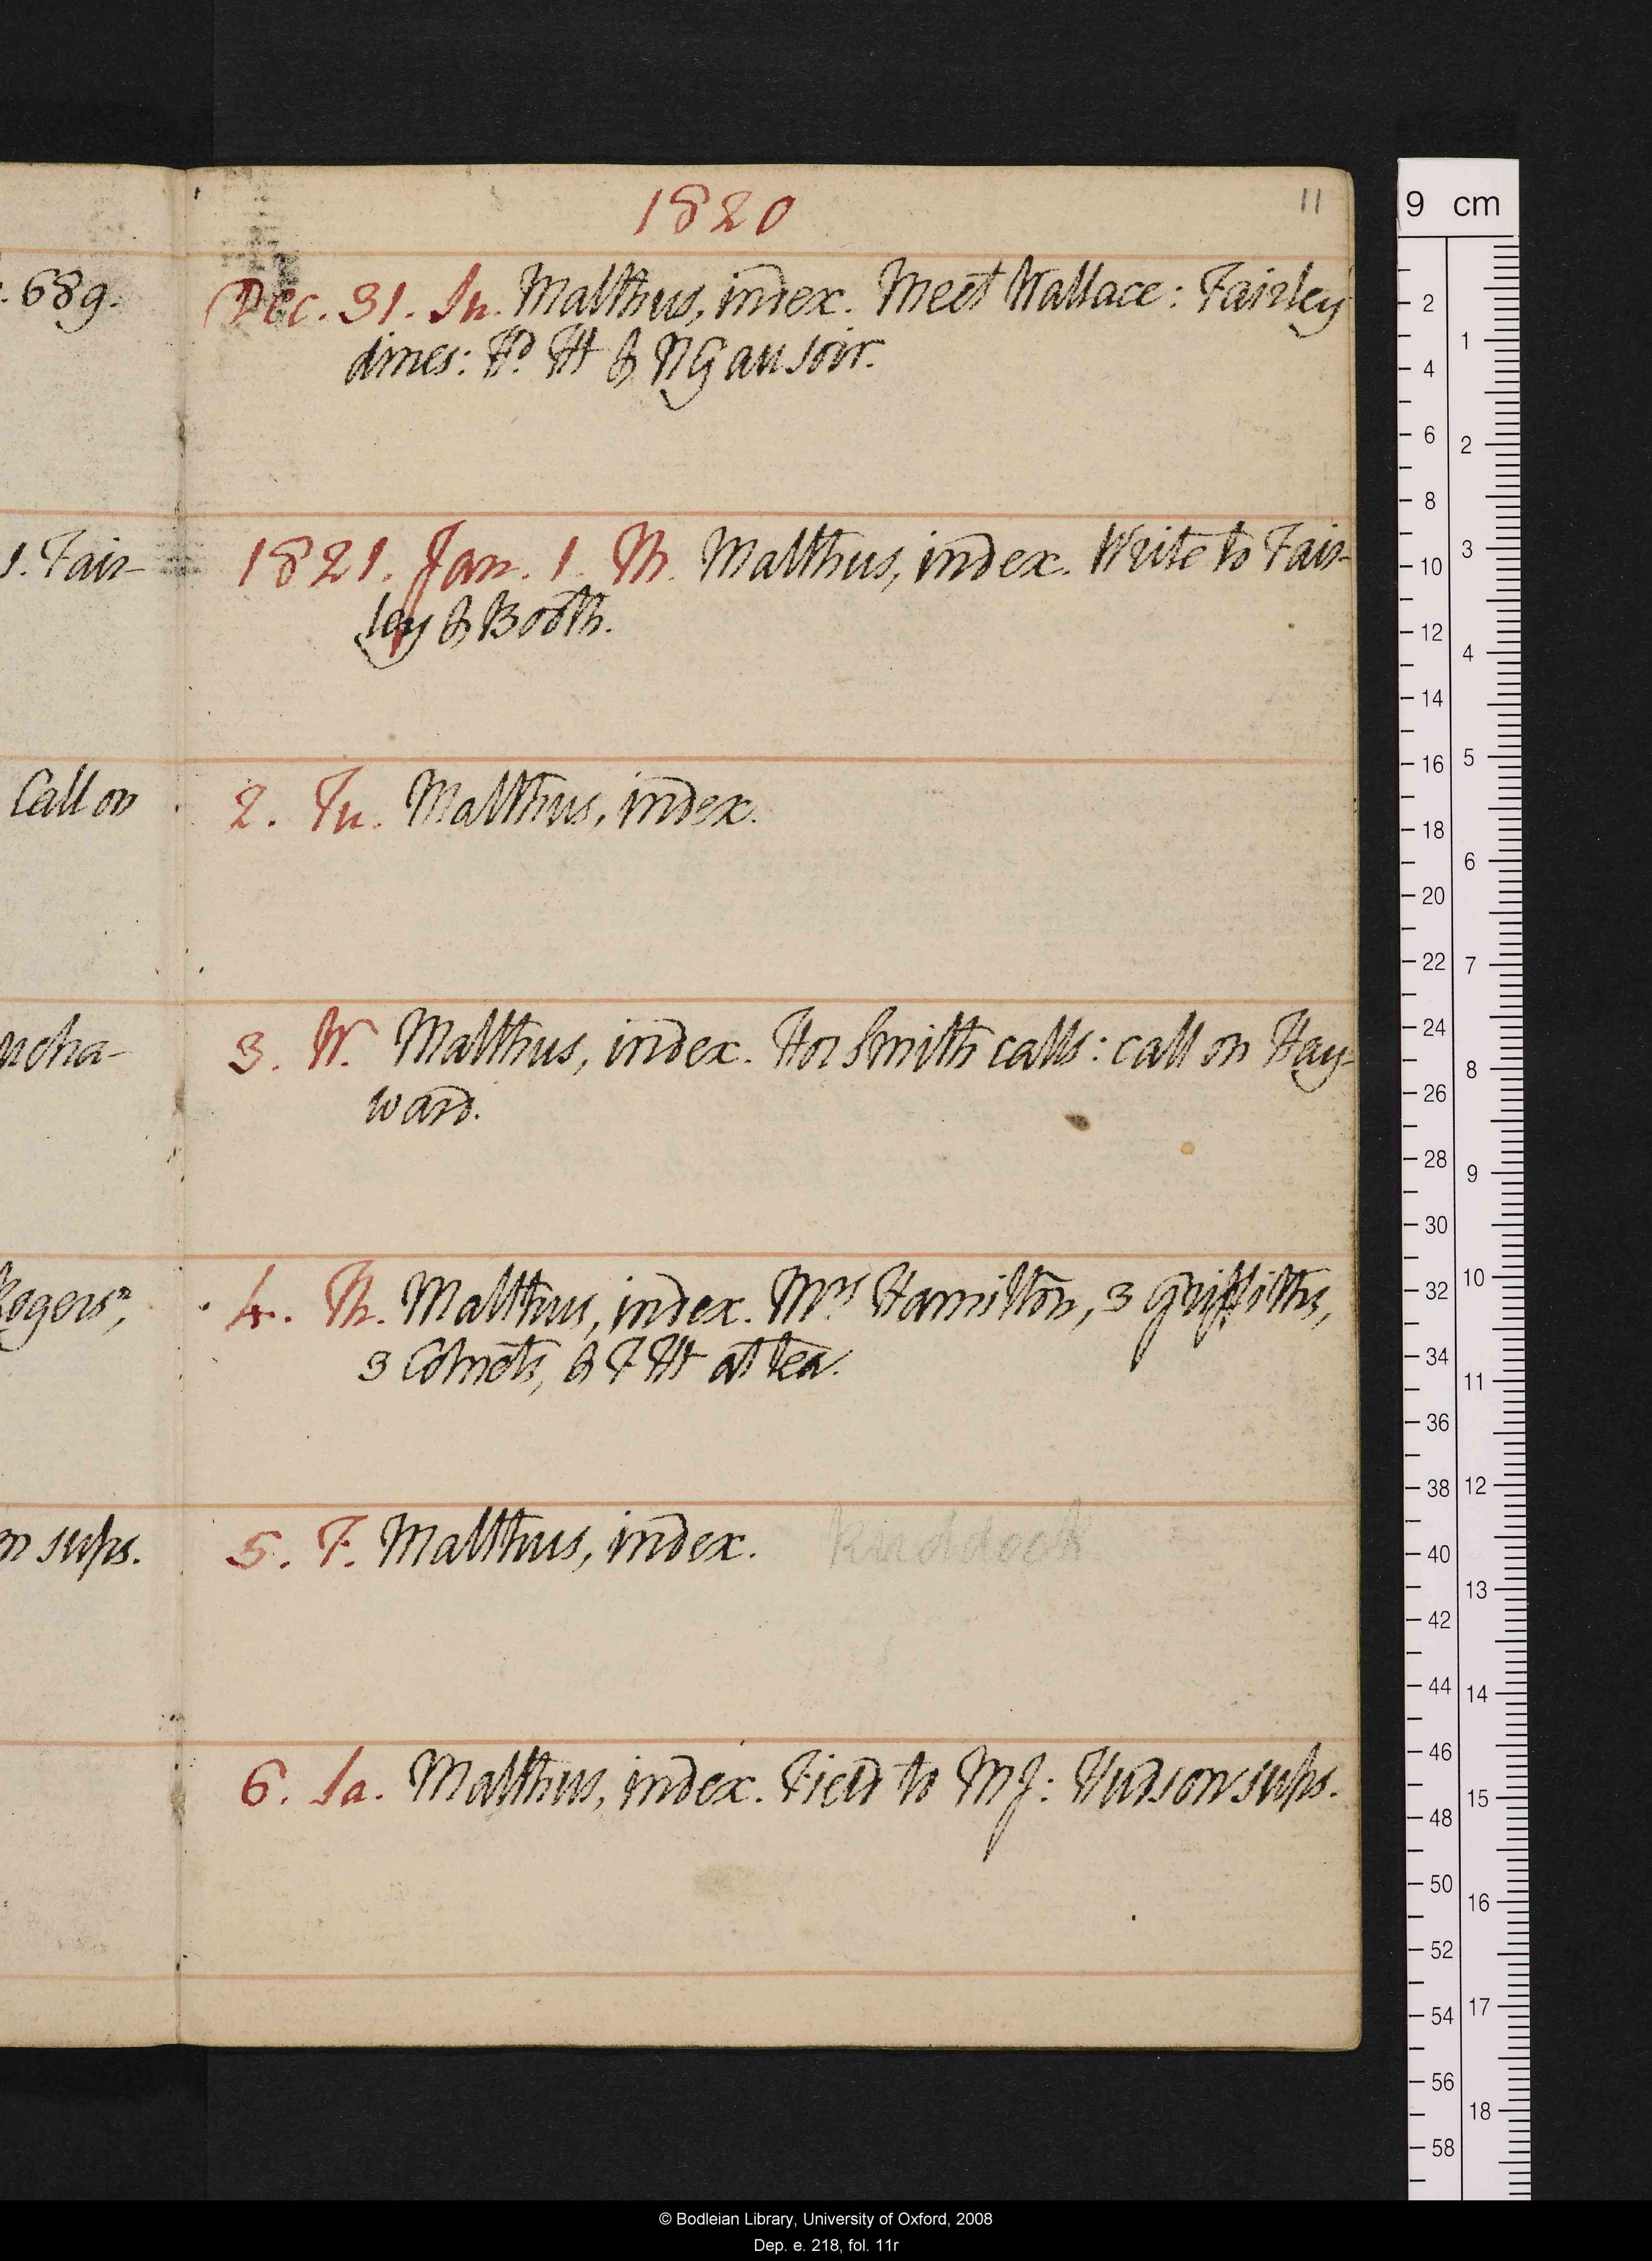 1820
11
689.
Dec. 31. Su. Malthus, index. Meet Wallace: Fairley
dines: Hd Ht & NG au soir.
1. Fair-
1821. Jan. 1. M. Malthus, index. Write to Fair-
ley & Booth.
Call on
2. Tu. Malthus, index.
3. W. Malthus, index. Hor Smith calls: call on Hay-
ward.
Rogers,
4. Th. Malthus, index. Mrs Hamilton, 3 Griffiths,
3 Colnets, & at tea.
sups.
5. F. Malthus, index. Ruddock
6. Sa. Malthus, index. Field to MJ: Hudson sups.
9 cm
2 4 6 8 10 12 14 16 18 20 22 24 26 28 30 32 34 36 38 40 42 44 46 48 50 52 54 56 58
1 2 3 4 5 6 7 8 9 10 11 12 13 14 15 16 17 18
© Bodleian Library, University of Oxford, 2008
Dep. e. 218, fol. 11r